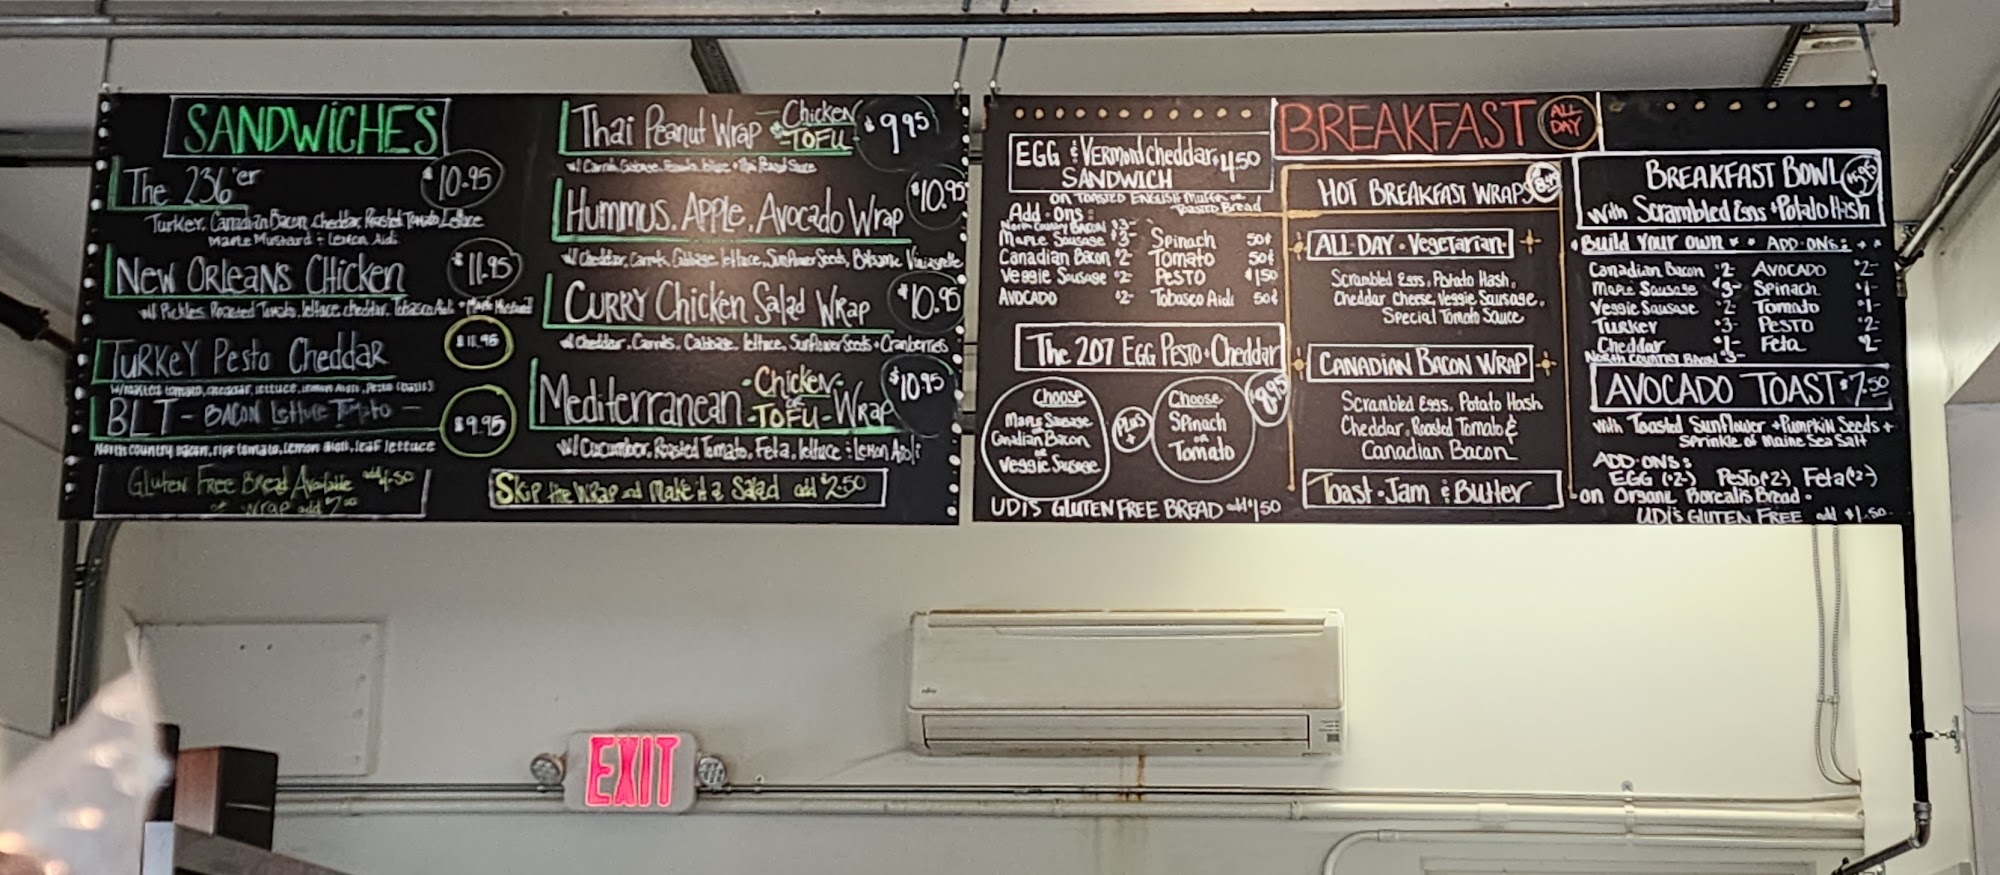 SANDWICHES
The 236'er $10.95
Turkey, Canadian Bacon, Cheddar, Roasted Tomato, Lettuce
Maple Mustard + Lemon Aioli
NEW ORLEANS CHICKEN $11.95
w/ Pickles, Roasted Tomato, lettuce, cheddar, Tobasco Aioli + Maple Mustard
TURKEY Pesto Cheddar $11.95
w/roasted tomato, cheddar, lettuce, lemon aioli, pesto (basil)
BLT - BACON Lettuce Tomato - $9.95
North country bacon, ripe tomato, lemon aioli, leaf lettuce
Gluten Free Bread Available add 1.50
or wrap add 2.00
Thai Peanut Wrap Chicken $9.95
or TOFU
w/ Carrot, Cabbage,
HUMMUS, APPLE, AVOCADO WRAP $10.95
w/ Cheddar, Carrots, Cabbage, lettuce, Sunflower Seeds, Balsamic Viniagrette
CURRY Chicken Salad Wrap $10.95
w/ Cheddar, Carrots, Cabbage, lettuce, Sunflower Seeds + Cranberries
Mediterranean - Chicken - $10.95
or
TOFU - WRAP
w/ Cucumber, Roasted Tomato, Feta, lettuce + Lemon Aioli
Skip the Wrap and Make it a Salad add $2.50
BREAKFAST ALL DAY
EGG & VERMONT Cheddar 4.50
SANDWICH
ON TOASTED ENGLISH MUFFIN or
Toasted Bread
Add-Ons:
North Country Bacon $3-
Maple Sausage $3- Spinach 50¢
Canadian Bacon $2- Tomato 50¢
Veggie Sausage $2- PESTO $1.50
AVOCADO $2- Tobasco Aioli 50¢
The 207 EGG PESTO + Cheddar $8.95
Choose
Maple Sausage
Canadian Bacon
or
Veggie Sausage
PLUS +
Choose
Spinach
OR
Tomato
UDI'S GLUTEN FREE BREAD add $1.50
HOT BREAKFAST WRAPS
ALL-DAY · Vegetarian
Scrambled Eggs, Potato Hash,
Cheddar Cheese, Veggie Sausage,
Special Tomato Sauce
CANADIAN BACON WRAP
Scrambled Eggs, Potato Hash
Cheddar, Roasted Tomato &
Canadian Bacon
Toast · Jam & Butter
BREAKFAST BOWL
with Scrambled Eggs + Potato Hash
Build your own ADD-ONS:
Canadian Bacon $2- AVOCADO $2-
Maple Sausage $3- Spinach $1-
Veggie Sausage $2- Tomato $1-
Turkey $3- PESTO $2-
Cheddar $1- Feta $2-
North Country Bacon $3-
AVOCADO TOAST $7.50
with Toasted Sunflower + Pumpkin Seeds +
sprinkle of Maine Sea Salt
ADD-ONS:
EGG ($2-) Pesto ($2-), Feta ($2-)
on Organic Borealis Bread.
UDI'S GLUTEN FREE add $1.50
EXIT